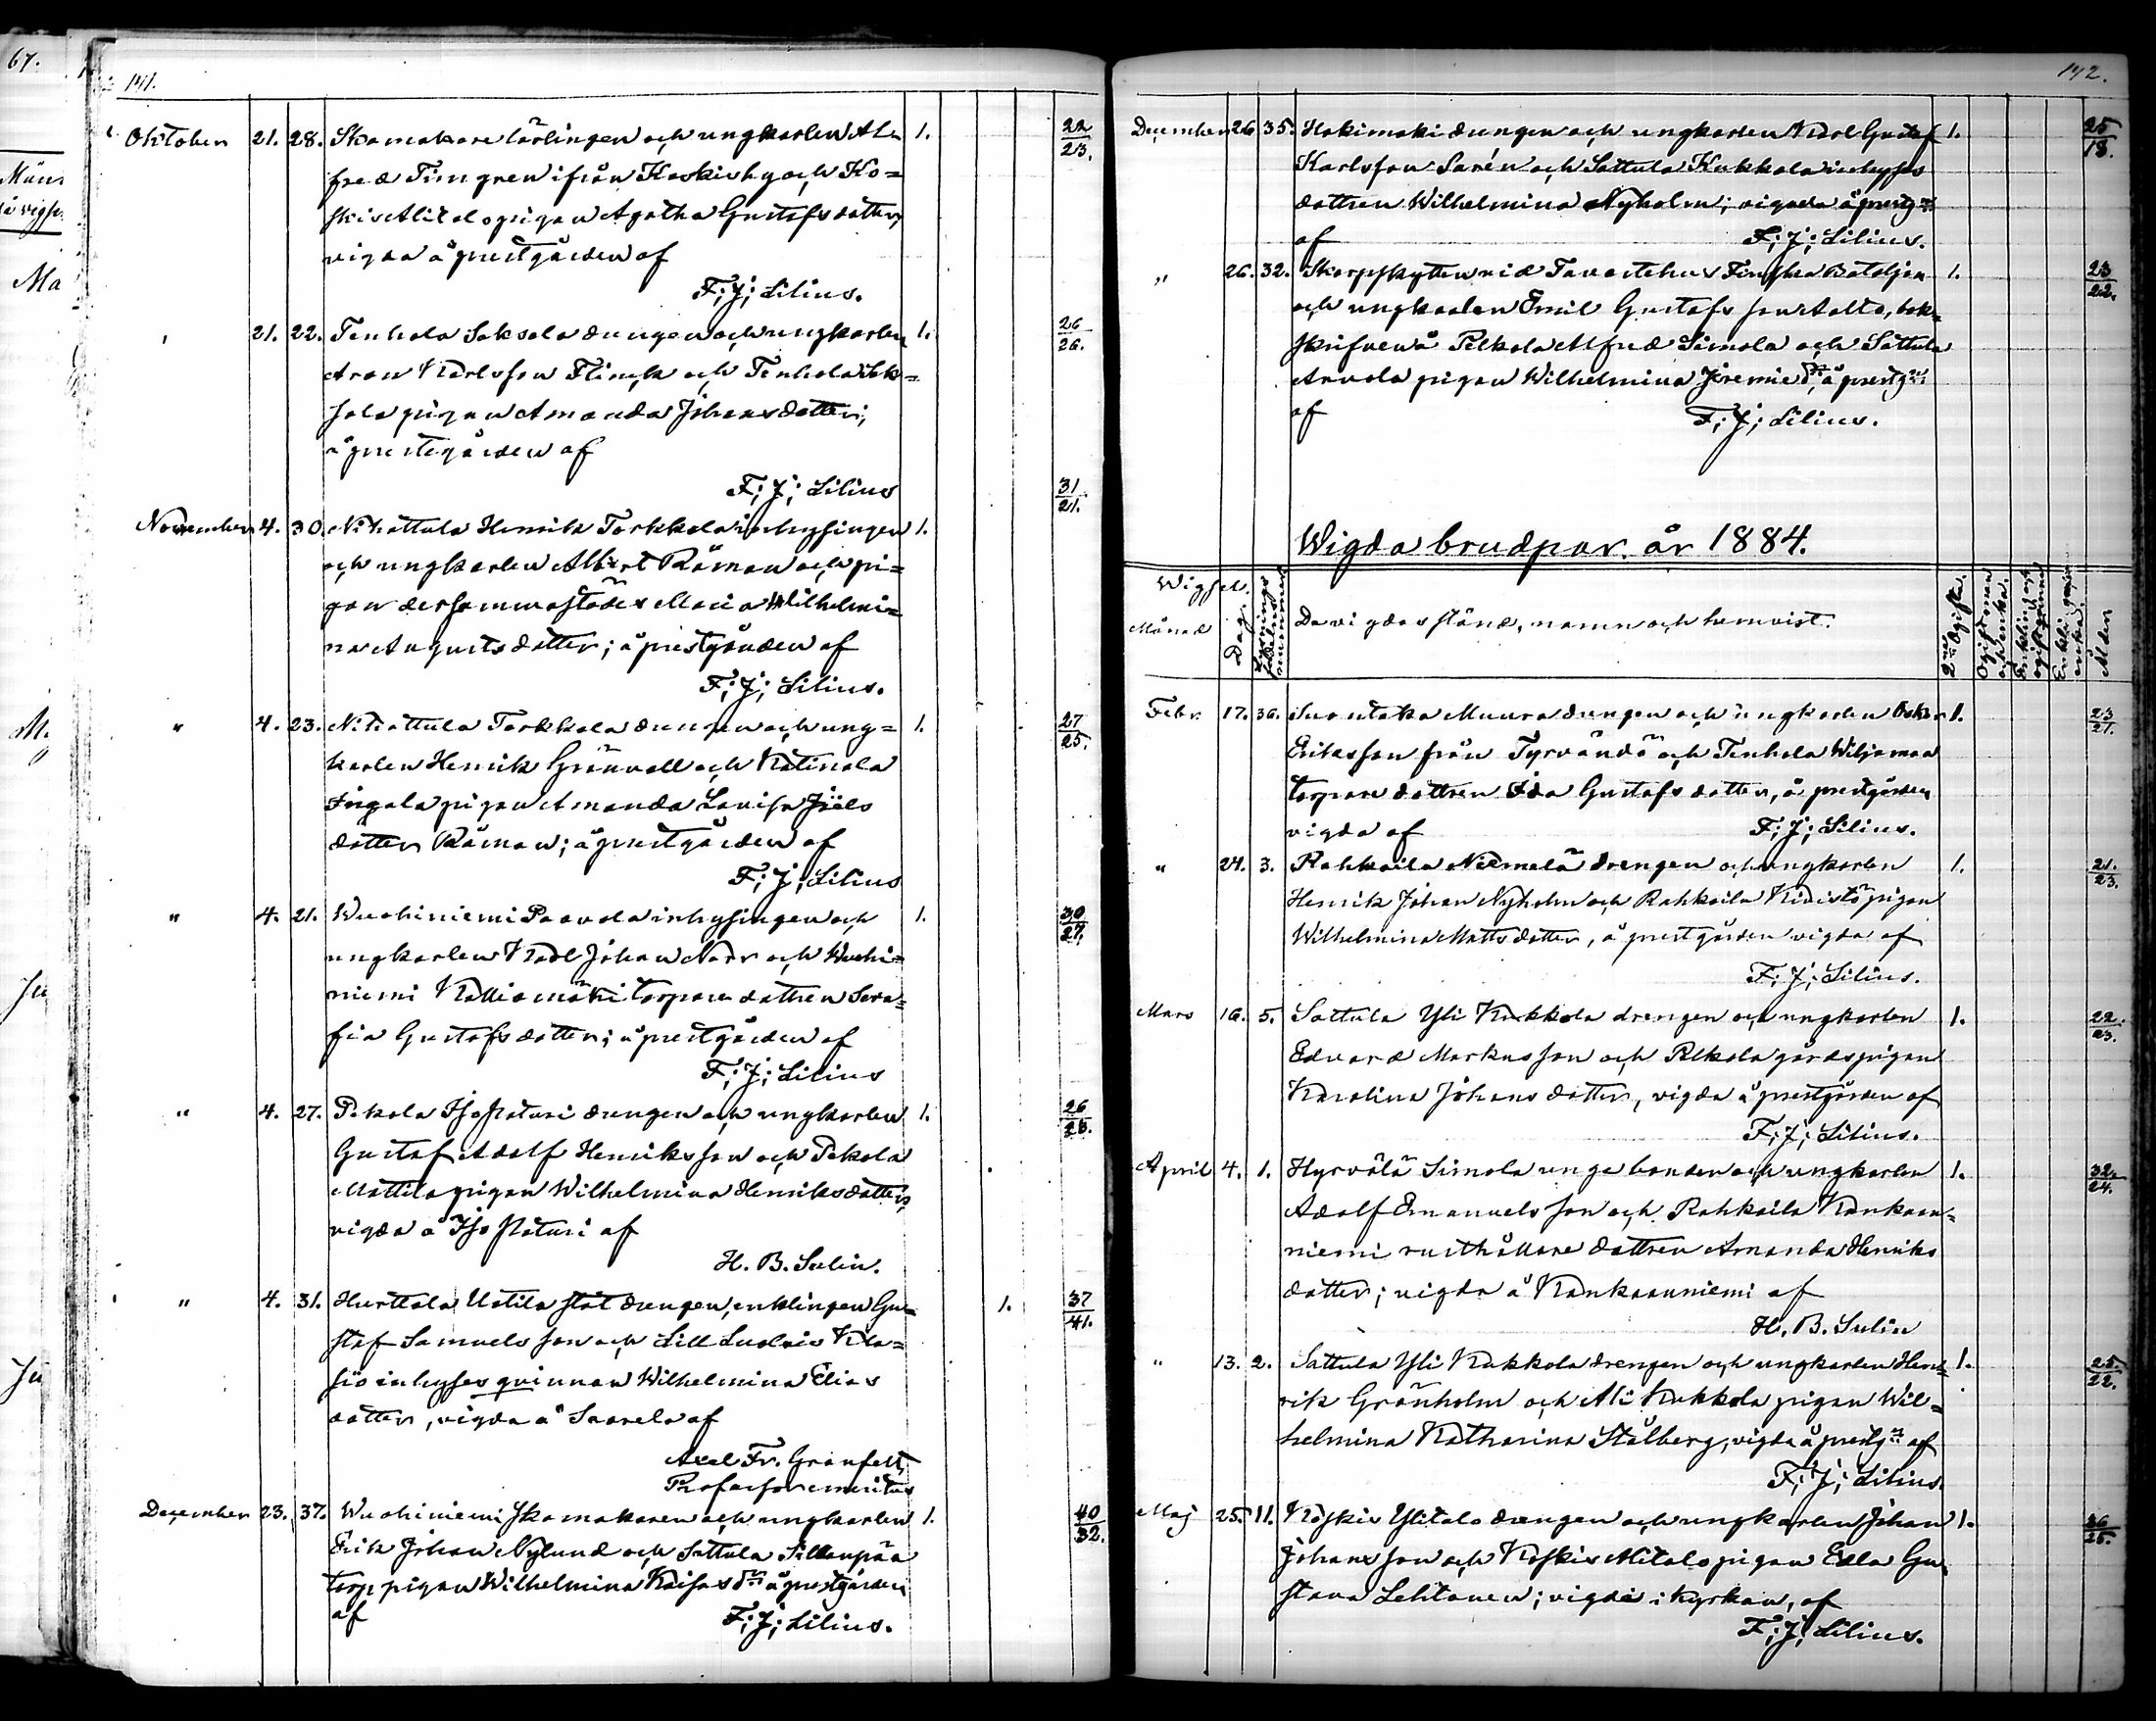 67.
141.
Oktober 21. 28. Skomakare lärlingen och ungkarlen Al- 1. 22/23.
fred Timgren ifrån Koskis by och Ko=
skis Alitalo pigan Agatha Gustafsdotter,
vigda å prestgården af
F; J; Lilius.
" 21. 22. Tenhola Saksala drengen och ungkarlen 1. 26/26.
Aron Karlsson Flinck och Tenhola Sak=
sala pigan Amanda Johansdotter;
å prestegården af
F; J; Lilius
November 4. 30. Nihattula Henrik Torkkola inhysingen 1. 31/21.
och ungkarlen Albert Råman och pi=
gan dersammastädes Maria Wilhelmi=
na Augustsdotter; å prestgården af
F; J; Lilius.
" 4. 23. Nihattula Torkkola drengen och ung= 1. 27/25.
karlen Henrik Grönvall och Katinala
Ingala pigan Amanda Lovisa Joels
dotter Råman; å prestgården af
F; J; Lilius
" 4. 21. Wuohiniemi Paavola inhysingen och 1. 30/27.
ungkarlen Karl Johan Norr och Wuohi=
niemi Kalliomäki torpare dottren Sera=
fia Gustafsdotter; å prestgården af
F; J; Lilius
" 4. 27. Pekola Isoflaturi drengen och ungkarlen 1. 26/28.
Gustaf Adolf Henriksson och Pekola
Mattila pigan Wilhelmina Henriksdotter,
vigda å Isoflaturi af
H. B. Sulin.
" 4. 31. Hurttala Uotila stat drengen, enklingen Gu= 1. 37/41.
staf Samuelsson och Lill Ludvis Kla=
siö inhyses qvinnan Wilhelmina Elias
dotter, vigda å Saarela af
Axel Fr. Granfelt,
Professor emeritus
December 23. 37. Wuohiniemi skomakaren och ungkarlen 1. 40/32.
Erik Johan Nylund och Sattula Sillanpää
torp pigan Wilhelmina Kaisas dr. å prestgården
af F; J; Lilius.
142.
December 26. 35. Hakimaki drengen och ungkarlen Karl Gustaf 1. 25/18.
Karlsson Sarén och Sattula Kukkola inhyses
dottren Wilhelmina Nyholm; vigda å prestgn
af F; J; Lilius.
" 26. 32. Skarpskytten vid Tavastehus Finska Bataljon 1. 23/22.
och ungkarlen Emil Gustafsson Aalto, bok=
skrifven å Pelkola Alfred Simola och Sattula
Arvola pigan Wilhelmina Jeremie dr, å prestgn
af F; J; Lilius.
Wigda brudpar år 1884.
Wigsel.
Månad Dag. Lysnings sedelns nummer De vigdas stånd, namn och hemvist. 2ne Ogifta. Ogift man och enka. Enkling och ogift qvinna Enkling och enka. Ålder
Febr. 17. 36. Suontaka Muura drengen och ungkarlen Oskar 1. 23/21.
Eriksson från Tyrvändö och Tenhola Wiljamaa
torpare dottren Ida Gustafsdotter, å prestgården
vigda af F; J; Lilius.
" 24. 3. Rahkoila Niemelä drengen och ungkarlen 1. 21/23.
Henrik Johan Nyholm och Rahkoila Kidistö pigan
Wilhelmina Mattsdotter, å prestgården vigda af
F; J; Lilius.
Mars 16. 5. Sattula Yli Kukkola drengen och ungkarlen 1. 22/23.
Edvard Markusson och Pelkola gårdspigan
Karolina Johansdotter, vigda å prestgården af
F; J; Lilius.
April 4. 1. Hyrvälä Simola unge bonden och ungkarlen 1. 32/24.
Adolf Emanuelsson och Rahkoila Kankaan=
niemi rusthållare dottren Amanda Henriks
dotter; vigda å Kankaanniemi af
H. B. Sulin
" 13. 2. Sattula Yli Kukkola drengen och ungkarlen Hen= 1. 25/22.
rik Grönholm och Ali Kukkola pigan Wil=
helmina Katharina Stålberg, vigda å prestgn af
F; J; Lilius.
Maj 25. 11. Koskis Ylitalo drengen och ungkarlen Johan 1. 26/25.
Johansson och Koskis Alitalo pigan Edla Gu
stava Lehtonen; vigde i kyrkan, af
F; J; Lilius.